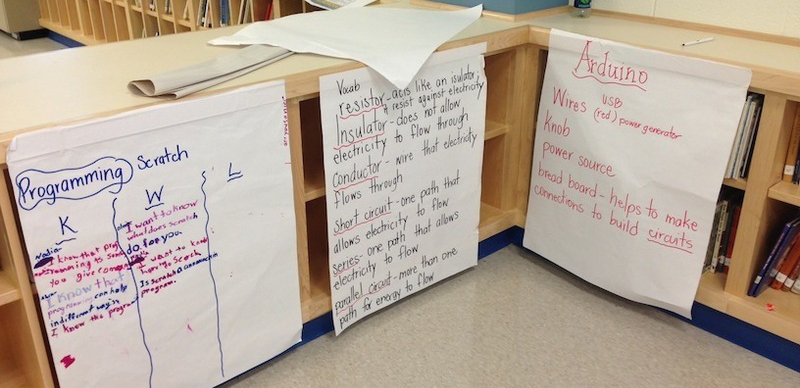 Programming Scratch
K W L
I know that
programming to
you give
I know that
programming can help
in different ways
I know the program
I want to know
what does scratch
do for you.
I want to know
how to
program.
Vocab
resistor - acts like an isulator,
& resist against electricity
Insulator - does not allow
electricity to flow through
Conductor - wire that electricity
flows through
short circuit - one path that
allows electricity to flow
series - one path that allows
electricity to flow
parallel circuit - more than one
path for energy to flow
Arduino
Wires USB (red) power generator
Knob
power source
bread board - helps to make
connections to build circuits